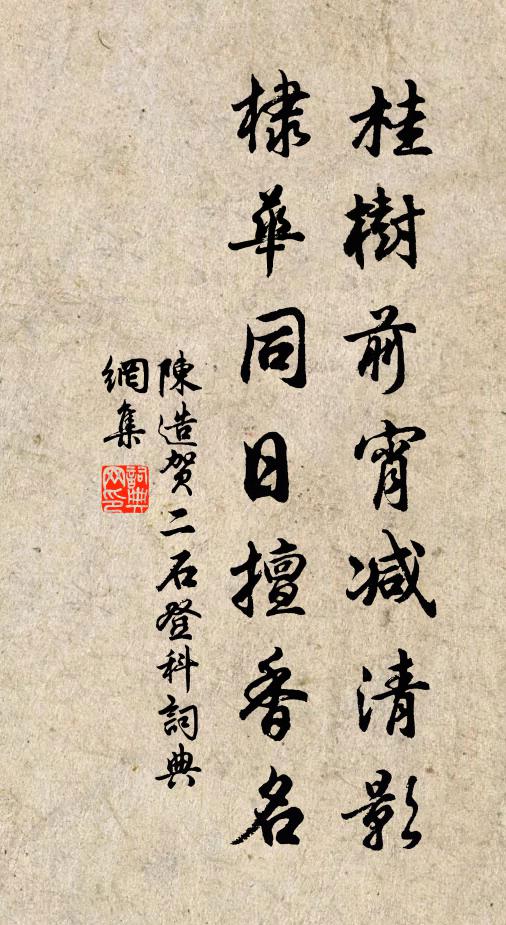 桂樹前宵減清影
棣華同日擅香名
陳造賀二石登科詞典
網集
詞典網印